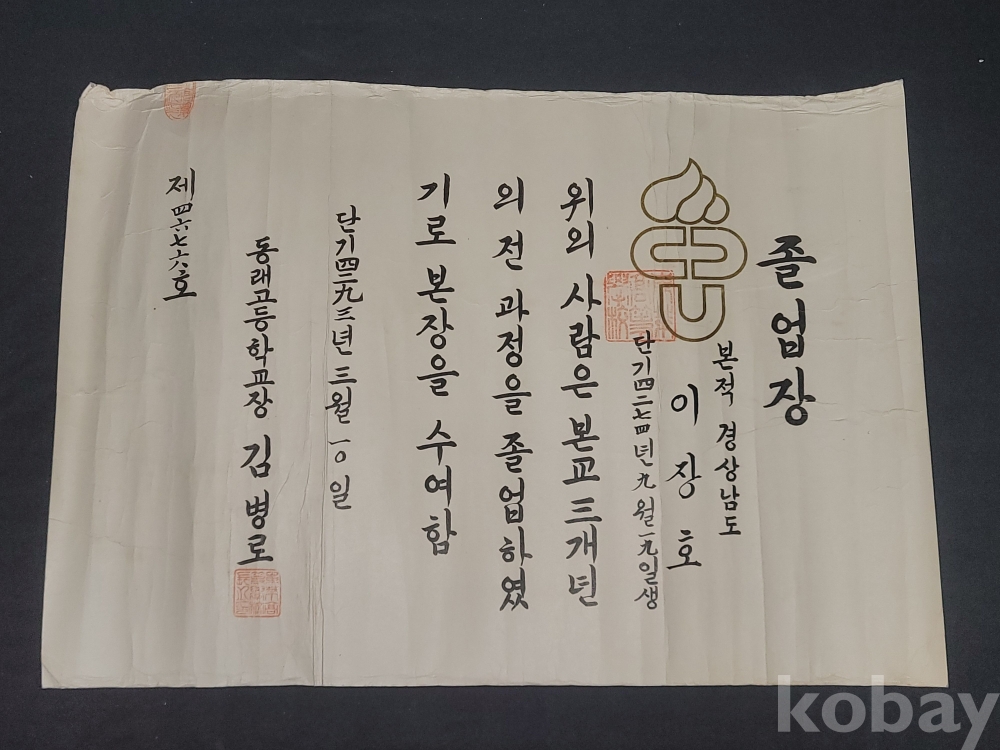 졸업장
본적 경상남도
이장호
단기四二七四년九월一九일생
위의 사람은 본교三개년
의 전 과정을 졸업하였
기로 본장을 수여함
단기四二九三년 三월 一○일
동래고등학교장 김병로
제四六七六호
kobay